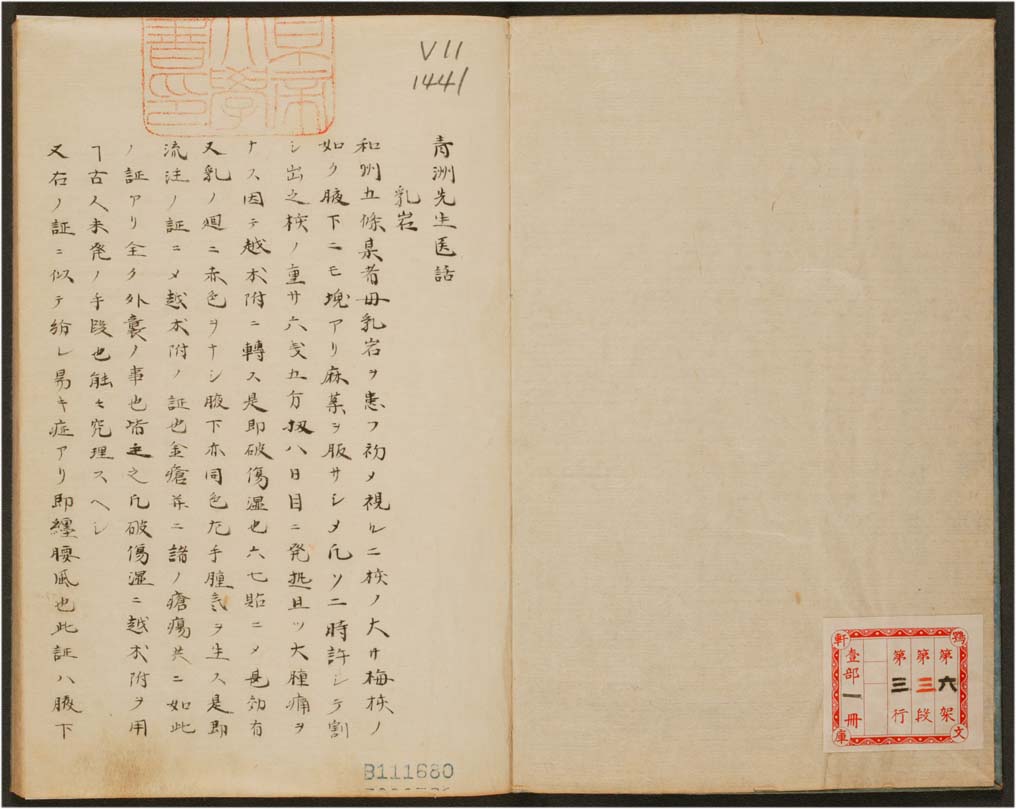 鶚
軒
文
庫
第六架
第三段
第三行
壹部一冊
V11
1441
青洲先生医話
乳岩
和州五條某者母乳岩ヲ患フ初メ視ルニ核ノ大サ梅核ノ
如ク腋下ニモ塊アリ麻薬ヲ服サシメ凡ソ二時許シテ割
シ出之核ノ重サ六戔五分扨八日目ニ発熱且ツ大腫痛ヲ
ナス因テ越朮附ニ轉ス是即破傷湿也六七貼ニメ甚効有
又乳ノ廻ニ赤色ヲナシ腋下亦同色左手腫気ヲ生ス是即
流注ノ証ニメ越朮附ノ証也金瘡并ニ諸ノ瘡瘍共ニ如此
ノ証アリ全ク外襲ノ事也皆之凡破傷湿ニ越朮附ヲ用
ヿ古人未発ノ手段也能モ究理スヘシ
又右ノ証ニ似テ紛レ易キ症アリ即纏腰風也此証ハ腋下
B111680